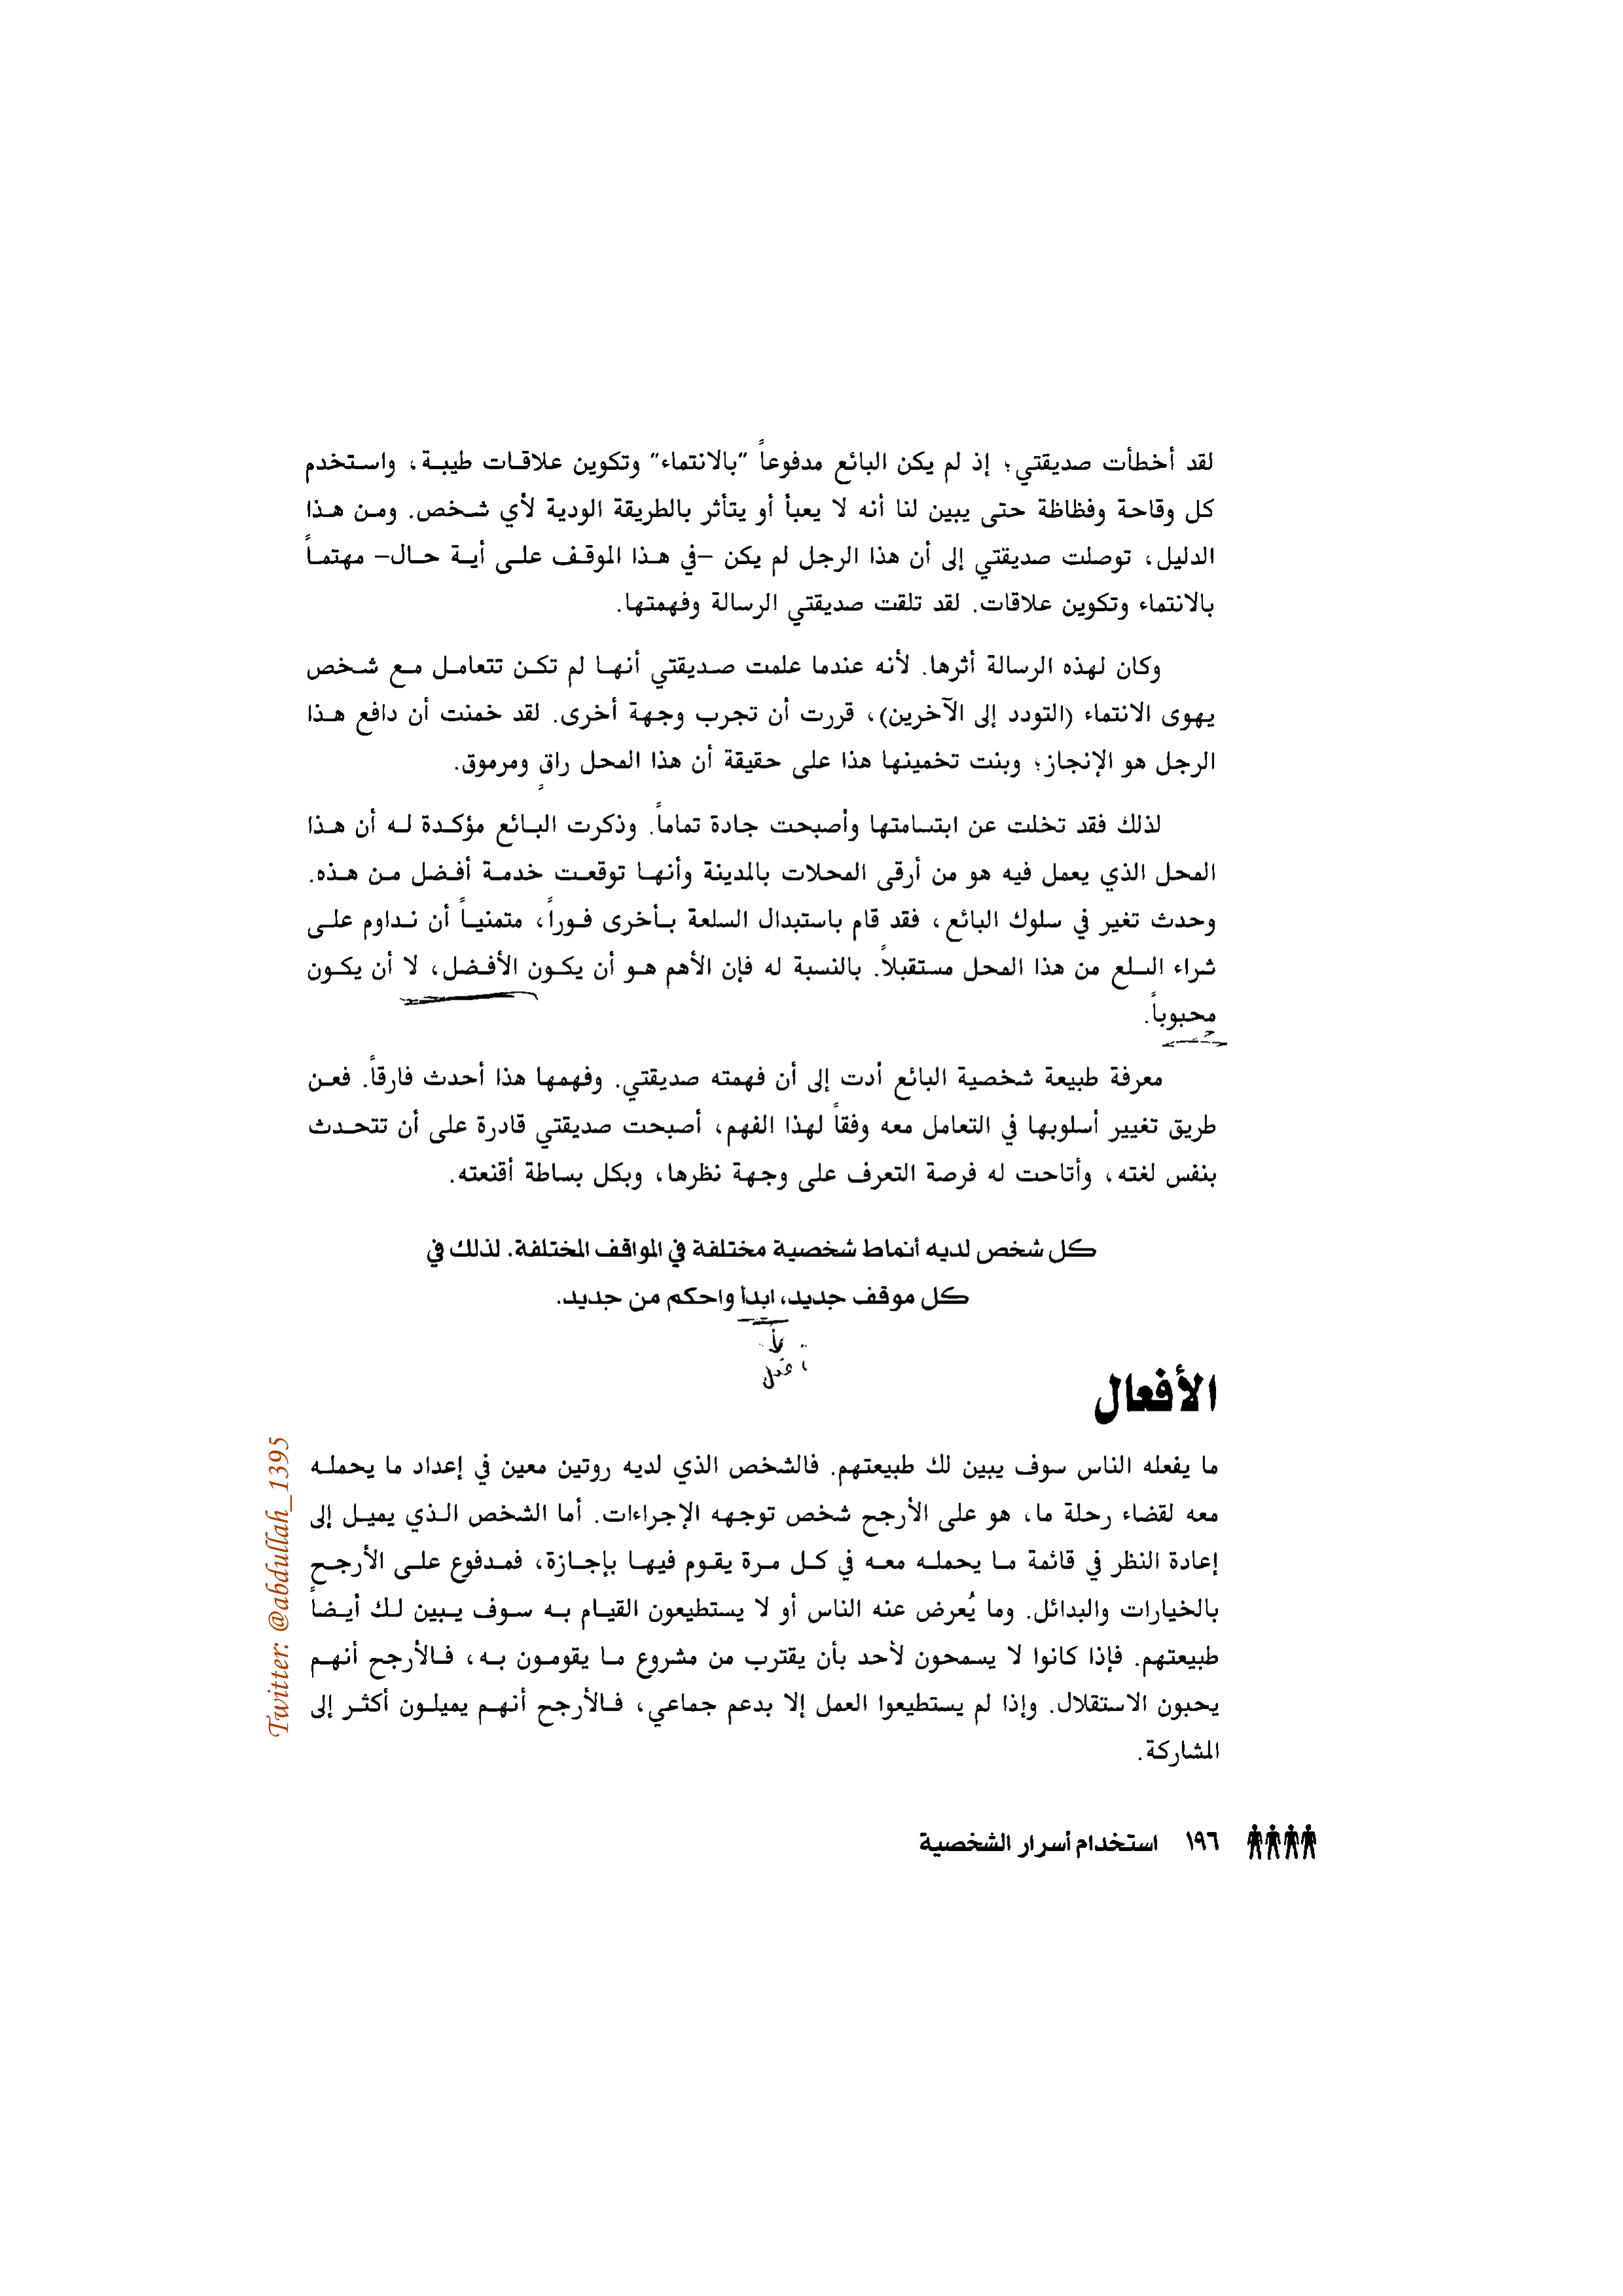 لقد أخطأت صديقتي؛ إذ لم يكن البائع مدفوعاً "بالانتماء" وتكوين علاقات طيبة، واستخدم
كل وقاحة وفظاظة حتى يبين لنا أنه لا يعبأ أو يتأثر بالطريقة الودية لأي شخص. ومن هذا
الدليل، توصلت صديقتي إلى أن هذا الرجل لم يكن –في هذا الموقف على أية حال– مهتماً
بالانتماء وتكوين علاقات. لقد تلقت صديقتي الرسالة وفهمتها.
وكان لهذه الرسالة أثرها. لأنه عندما علمت صديقتي أنها لم تكن تتعامل مع شخص
يهوى الانتماء (التودد إلى الآخرين)، قررت أن تجرب وجهة أخرى. لقد خمنت أن دافع هذا
الرجل هو الإنجاز؛ وبنت تخمينها هذا على حقيقة أن هذا المحل راقٍ ومرموق.
لذلك فقد تخلت عن ابتسامتها وأصبحت جادة تماماً. وذكرت البائع مؤكدة له أن هذا
المحل الذي يعمل فيه هو من أرقى المحلات بالمدينة وأنها توقعت خدمة أفضل من هذه.
وحدث تغير في سلوك البائع، فقد قام باستبدال السلعة بأخرى فوراً، متمنياً أن نداوم على
شراء السلع من هذا المحل مستقبلاً. بالنسبة له فإن الأهم هو أن يكون الأفضل، لا أن يكون
محبوباً.
معرفة طبيعة شخصية البائع أدت إلى أن فهمته صديقتي. وفهمها هذا أحدث فارقاً. فعن
طريق تغيير أسلوبها في التعامل معه وفقاً لهذا الفهم، أصبحت صديقتي قادرة على أن تتحدث
بنفس لغته، وأتاحت له فرصة التعرف على وجهة نظرها، وبكل بساطة أقنعته.
كل شخص لديه أنماط شخصية مختلفة في المواقف المختلفة. لذلك في
كل موقف جديد، ابدأ واحكم من جديد.
الأفعال
ما يفعله الناس سوف يبين لك طبيعتهم. فالشخص الذي لديه روتين معين في إعداد ما يحمله
معه لقضاء رحلة ما، هو على الأرجح شخص توجهه الإجراءات. أما الشخص الذي يميل إلى
إعادة النظر في قائمة ما يحمله معه في كل مرة يقوم فيها بإجازة، فمدفوع على الأرجح
بالخيارات والبدائل. وما يُعرض عنه الناس أو لا يستطيعون القيام به سوف يبين لك أيضاً
طبيعتهم. فإذا كانوا لا يسمحون لأحد بأن يقترب من مشروع ما يقومون به، فالأرجح أنهم
يحبون الاستقلال. وإذا لم يستطيعوا العمل إلا بدعم جماعي، فالأرجح أنهم يميلون أكثر إلى
المشاركة.
١٩٦ استخدام أسرار الشخصية
Twitter: @abdullah_1395